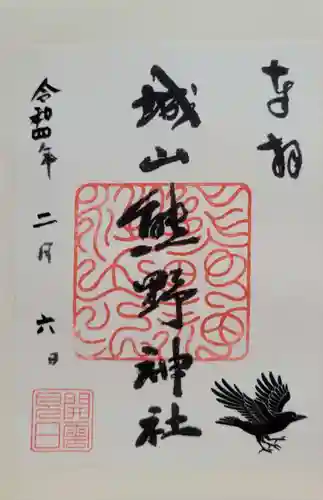 奉拝
城山熊野神社
令和四年二月六日
開雲見日